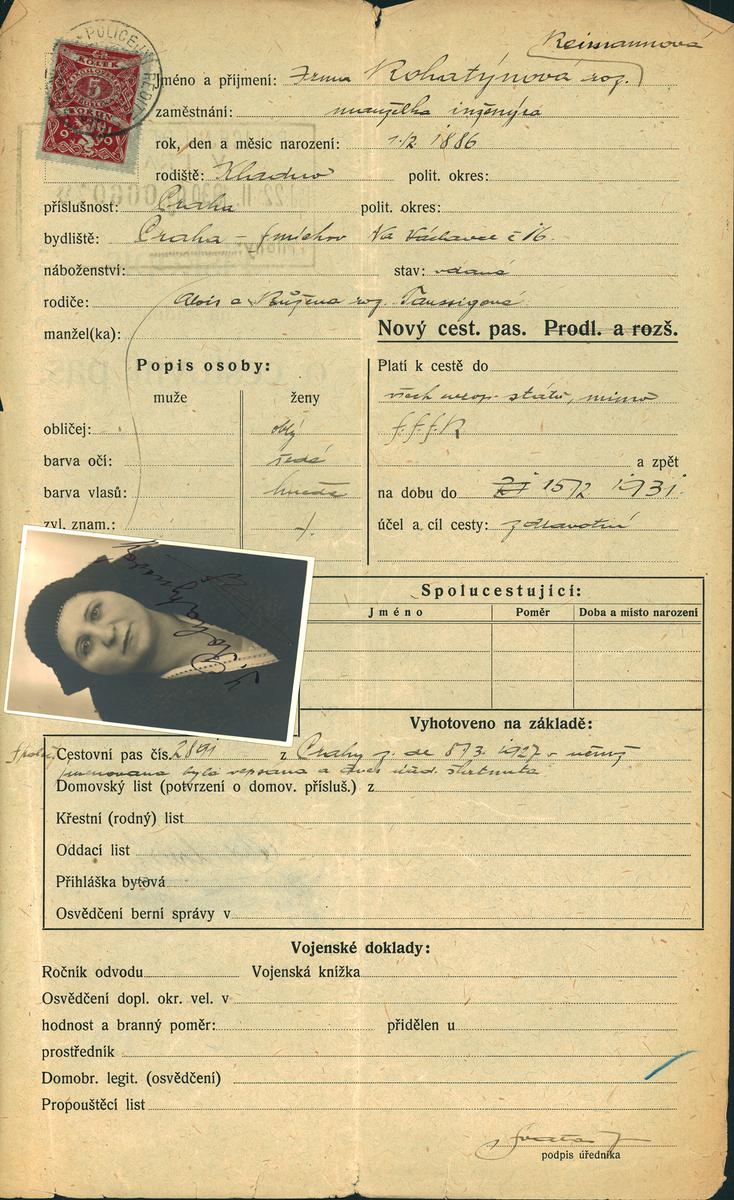 Reimannová
Jméno a příjmení: Irma Rohatýnová roz.
zaměstnání: manželka inženýra
rok, den a měsíc narození: 1/2 1886
rodiště: Kladno polit. okres:
příslušnost: Praha polit. okres:
bydliště: Praha - Smíchov Na Václavce č 16.
náboženství: stav: vdaná
rodiče: Alois a Růžena roz. Taussigová
manžel(ka):
Nový cest. pas. Prodl. a rozš.
Popis osoby:
muže ženy
obličej: oblý
barva očí: šedé
barva vlasů: hnědé
zvl. znam.:
Platí k cestě do
všech evrop. států, mimo
a zpět
na dobu do 15/2 1931
účel a cíl cesty: zdravotní
Spolucestující:
Jméno Poměr Doba a místo narození
I. Rohatýnová
Vyhotoveno na základě:
Cestovní pas čís. 2891 z Prahy z. de 8/3. 1927 v němž
jmenovaná byla vepsána a dnes úřed. škrtnuta
Domovský list (potvrzení o domov. přísluš.) z
Křestní (rodný) list
Oddací list
Přihláška bytová
Osvědčení berní správy v
Vojenské doklady:
Ročník odvodu Vojenská knížka
Osvědčení dopl. okr. vel. v
hodnost a branný poměr: přidělen u
prostředník
Domobr. legit. (osvědčení)
Propouštěcí list
podpis úředníka
5